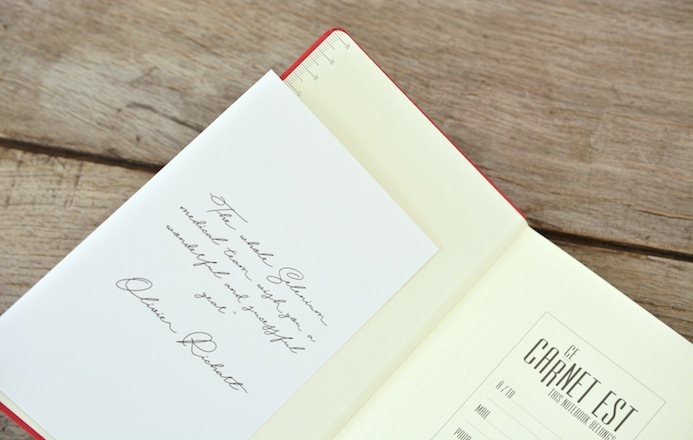 The whole Selenium
medical team wish you a
wonderful and sucessful
year -
Olivier Richart
CE
CARNET EST
THIS NOTEBOOK BELONGS
À / TO
MAIL